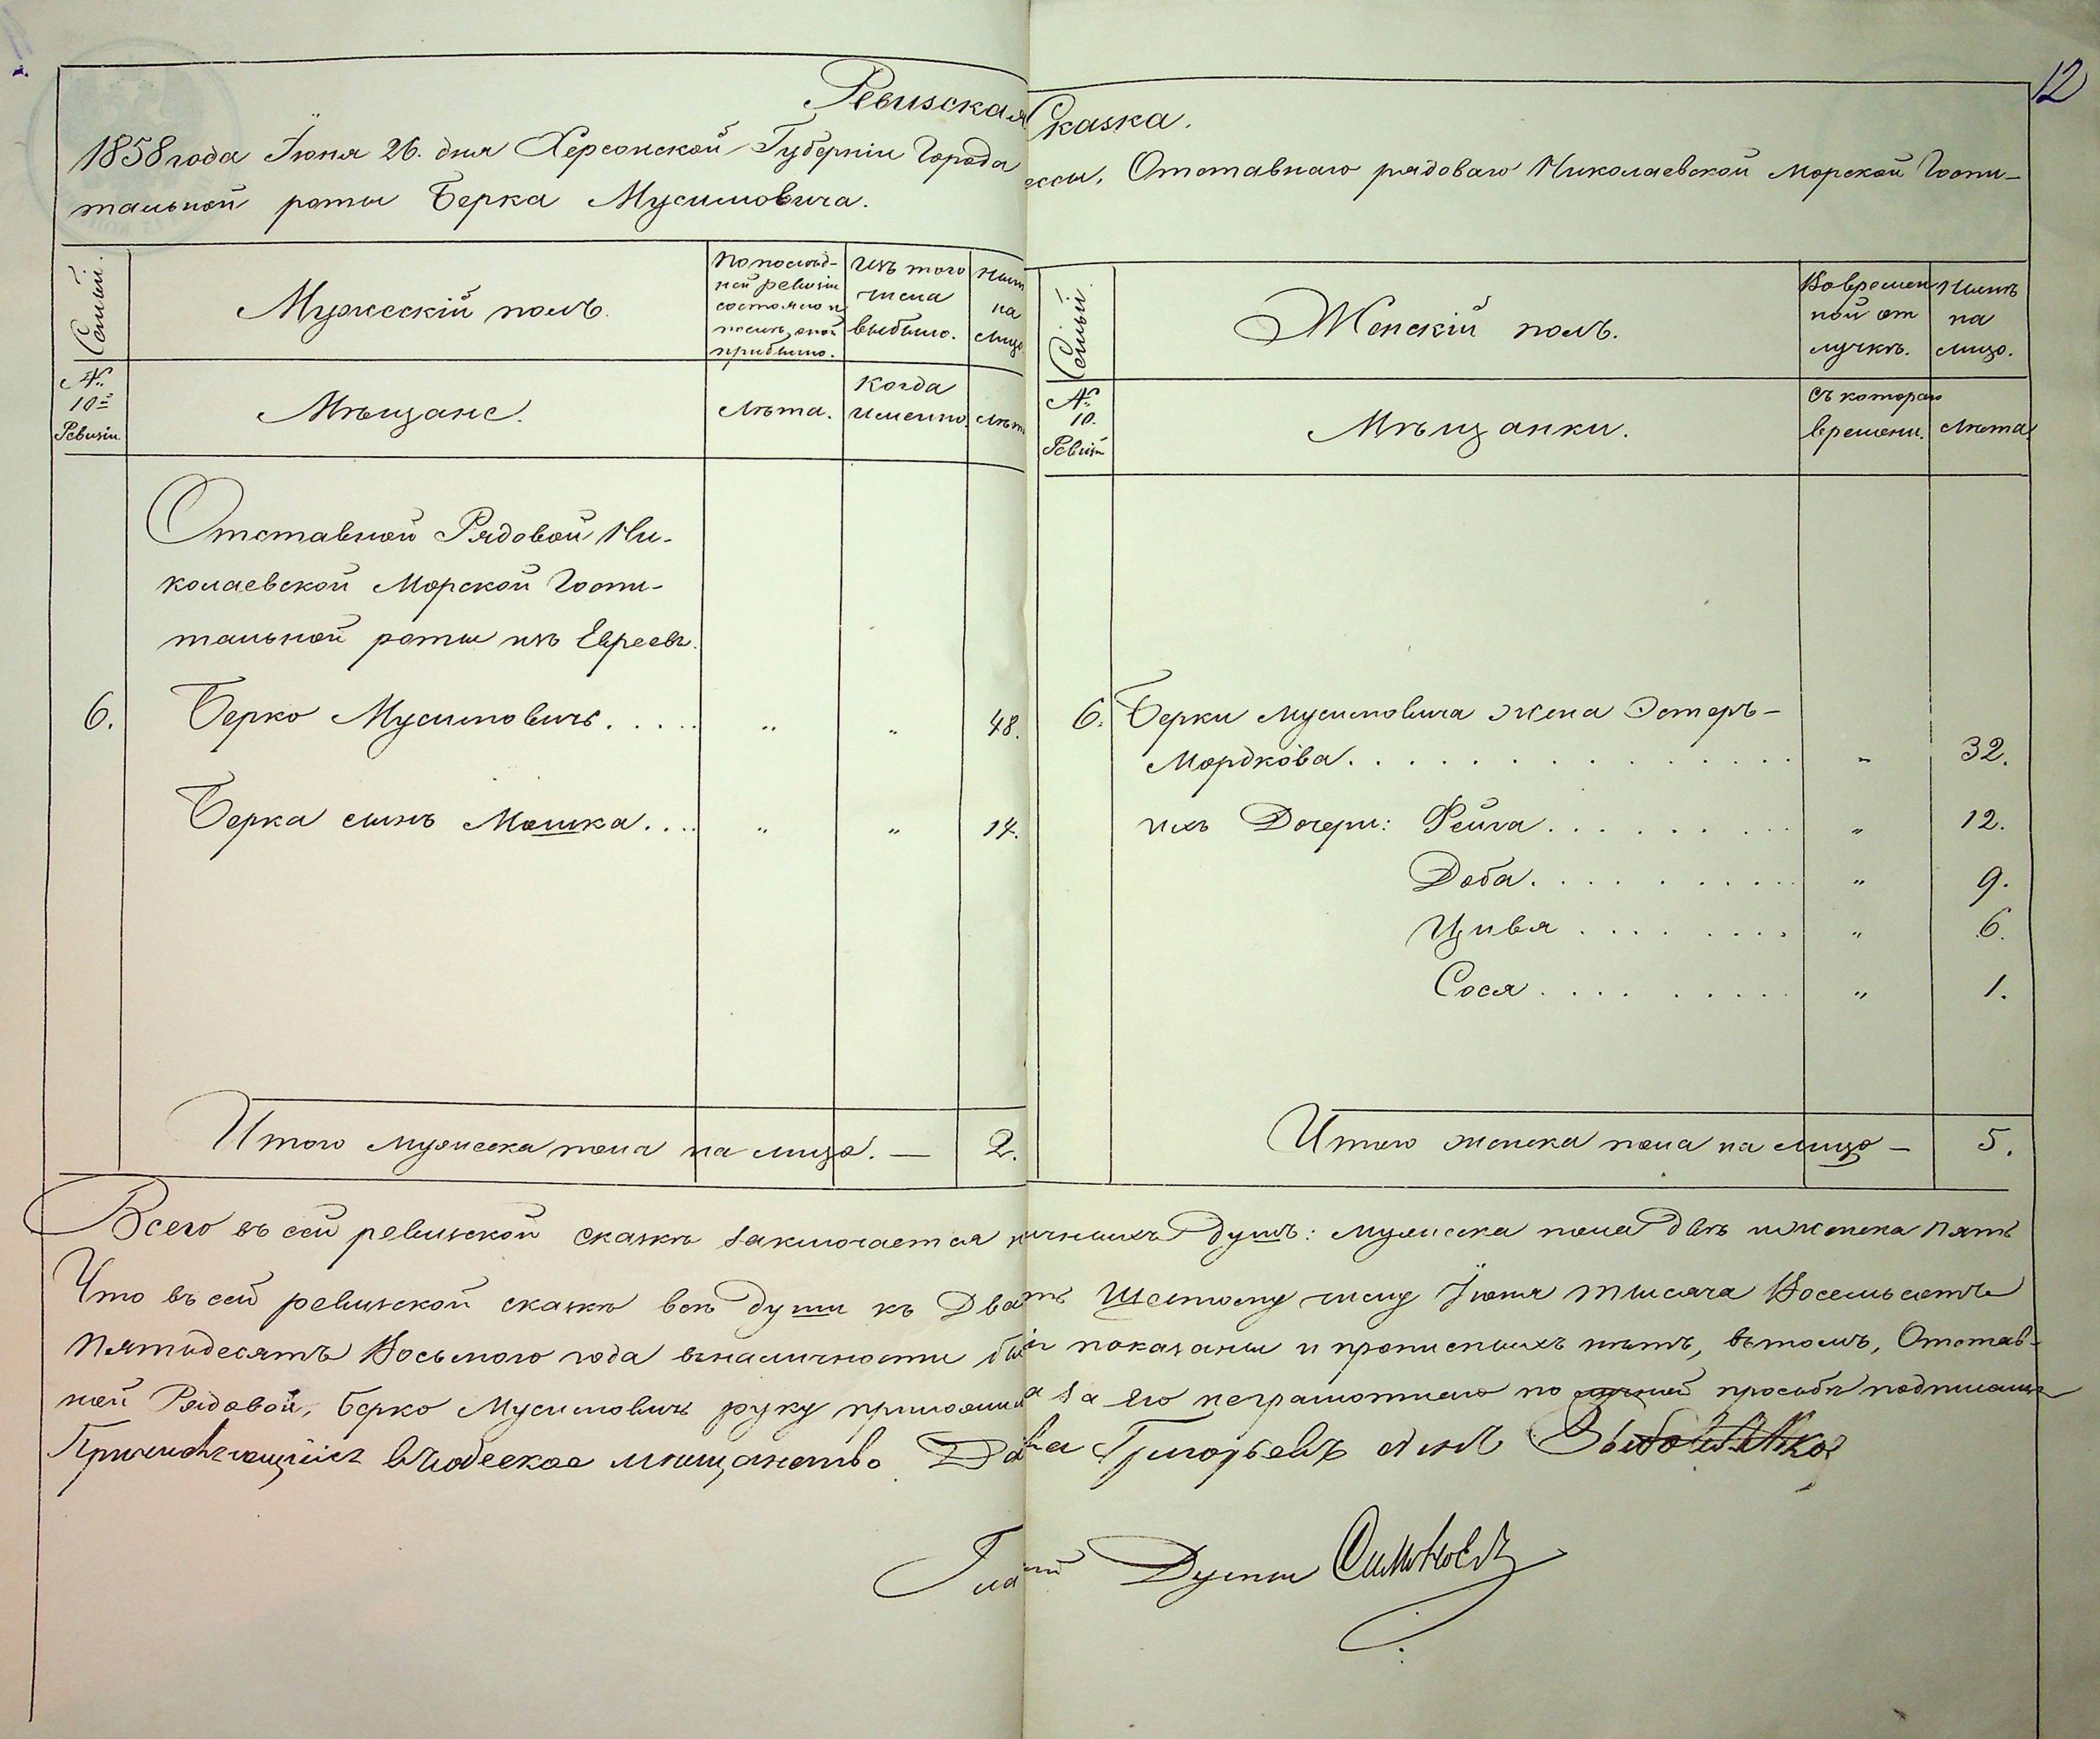 12
Ревизская Сказка.
1858 года Іюня 26. дня Херсонской Губерніи Города ессы, Отставнаго рядоваго Николаевской Морской Госпи-
тальной роты Берка Мусимовича.
Семьи.
Мужескій полъ.
По послѣд-
ней ревизіи
состояло и
послѣ оной
прибыло.
Изъ того
числа
выбыло.
Нынѣ
на
лицо.
№
10й
Ревизіи
Мѣщане.
Лѣта.
Когда
именно.
Лѣта
Семьи.
Женскій полъ.
Во времен
ной от
лучкѣ.
Нынѣ
на
лицо.
№
10.
Ревизіи
Мѣщанки.
Съ котораго
времени.
Лѣта.
Отставной Рядовой Ни-
колаевской Морской Госпи-
тальной роты изъ Евреевъ.
6. Берко Мусимовичъ. . . . . " " 48.
Берка сынъ Мошка. . . . " " 14.
Итого мужеска пола на лицо. — 2.
6. Берки Мусимовича жена Эстеръ-
Мордкова. . . . . . . . . . . . . . " 32.
ихъ Дочери: Фейга. . . . . . . . . " 12.
Доба. . . . . . . . . . " 9.
Цивья . . . . . . . . " 6.
Сося. . . . . . . . . . " 1.
Итого женска пола на лицо — 5.
Всего въ сей ревизской сказкѣ заключается наличныхъ Душъ: мужеска пола двѣ и женска пять
Что въ сей ревизской сказкѣ всѣ души къ Двадцать Шестому числу Іюня тысяча Восемьсотъ
Пятьдесятъ Восьмого года въ наличности бывшія показаны и прописныхъ нѣтъ, въ томъ, Отстав-
ной Рядовой, Берко Мусимовичъ руку приложилъ а за его неграмотнаго по личной просьбѣ подписалъ
Причисляющійся в Одеское мѣщанство Григорьевъ сынъ
Гласный Думы Симоновъ